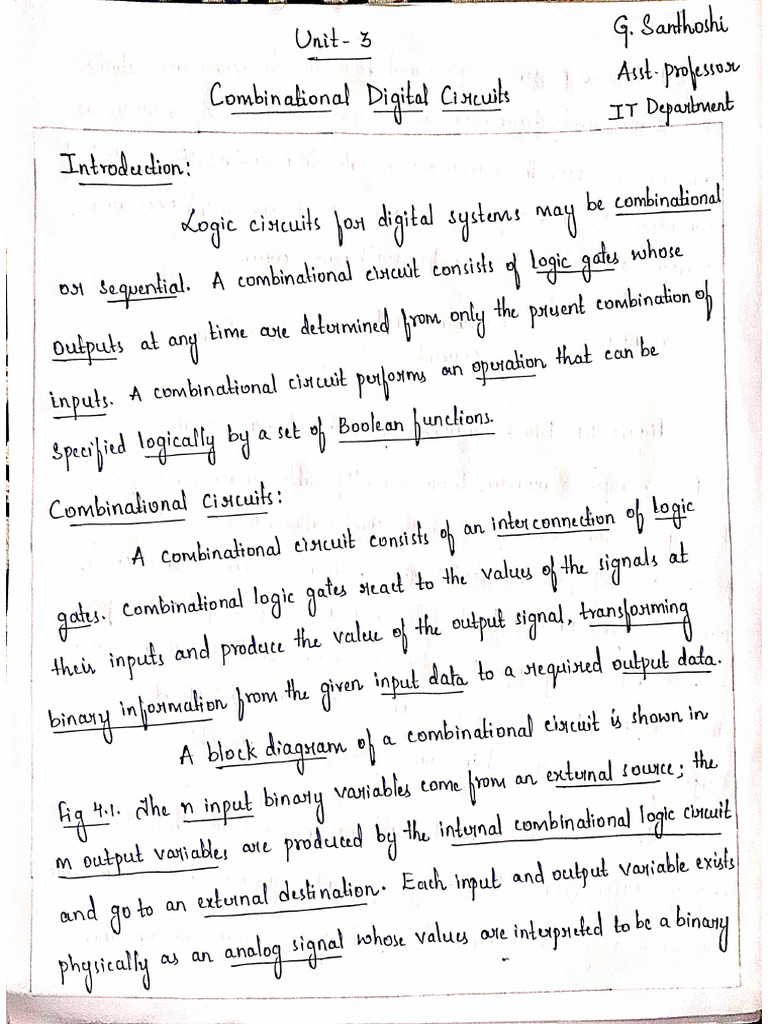 Unit - 3
G. Santhoshi
Asst. professor
IT Department
Combinational Digital Circuits
Introduction:
Logic circuits for digital systems may be combinational
or sequential. A combinational circuit consists of logic gates whose
outputs at any time are determined from only the present combination of
inputs. A combinational circuit performs an operation that can be
specified logically by a set of Boolean functions.
Combinational Circuits:
A combinational circuit consists of an interconnection of logic
gates. Combinational logic gates react to the values of the signals at
their inputs and produce the value of the output signal, transforming
binary information from the given input data to a required output data.
A block diagram of a combinational circuit is shown in
fig 4.1. The n input binary variables come from an external source; the
m output variables are produced by the internal combinational logic circuit
and go to an external destination. Each input and output variable exists
physically as an analog signal whose values are interpreted to be a binary